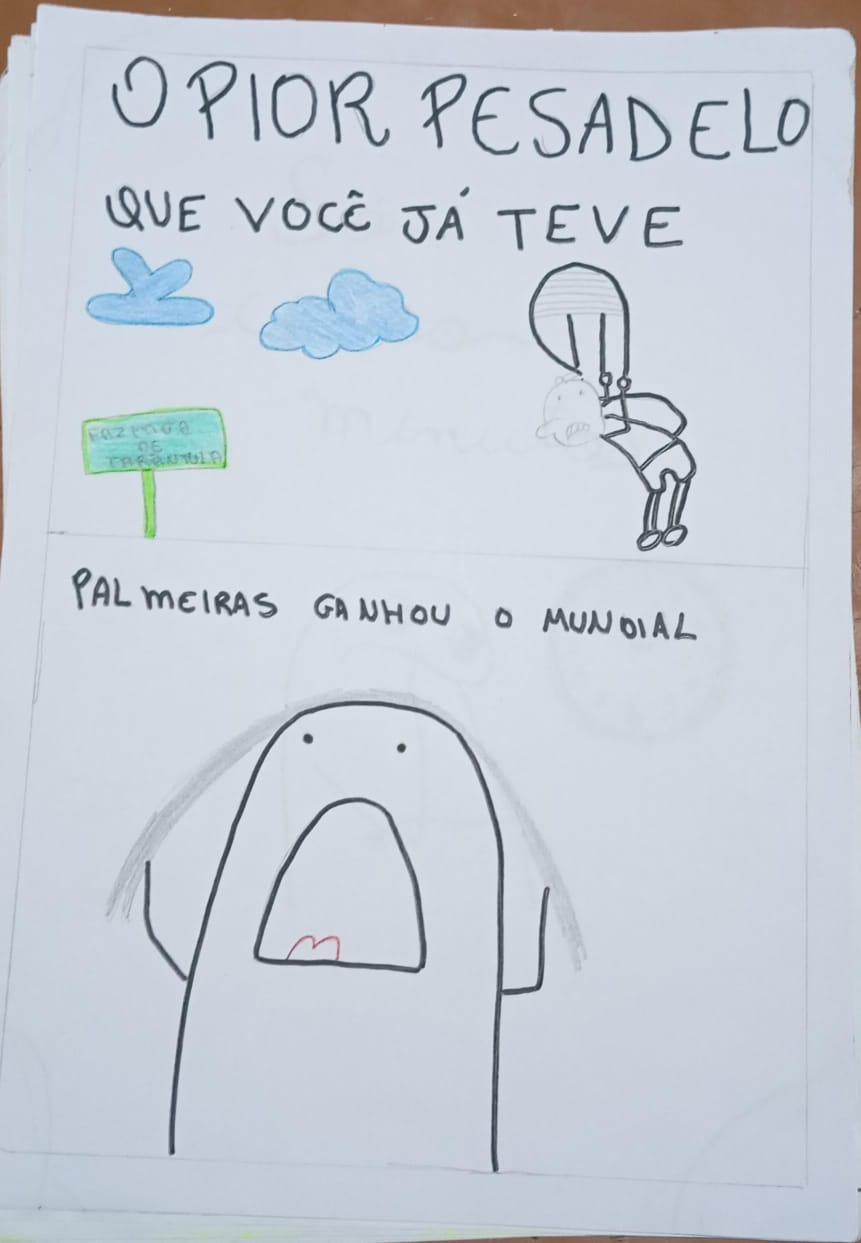 O PIOR PESADELO
QUE VOCÊ JÁ TEVE
FAZENDA
DE
TARÂNTULA
PALMEIRAS GANHOU O MUNDIAL